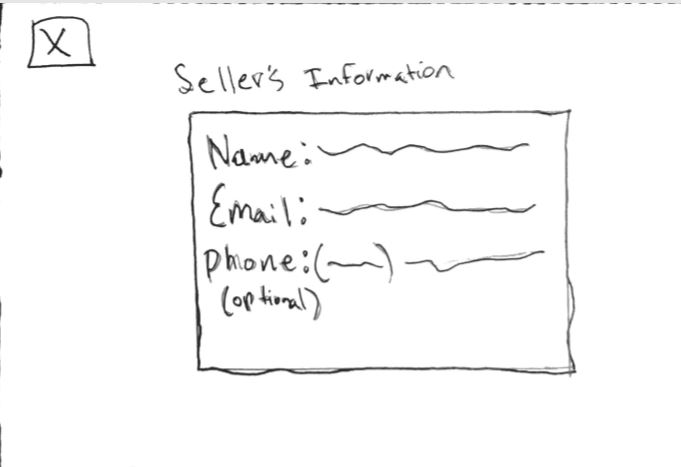 X
Seller's Information
Name:
Email:
phone:( )
(optional)